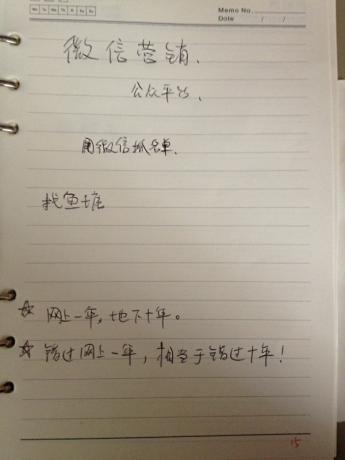 Memo No.
Date / /
微信营销.
公众平台.
用微信抓名单.
找鱼塘
☆ 网上一年，地下十年。
☆ 错过网上一年，相当于错过十年！
15